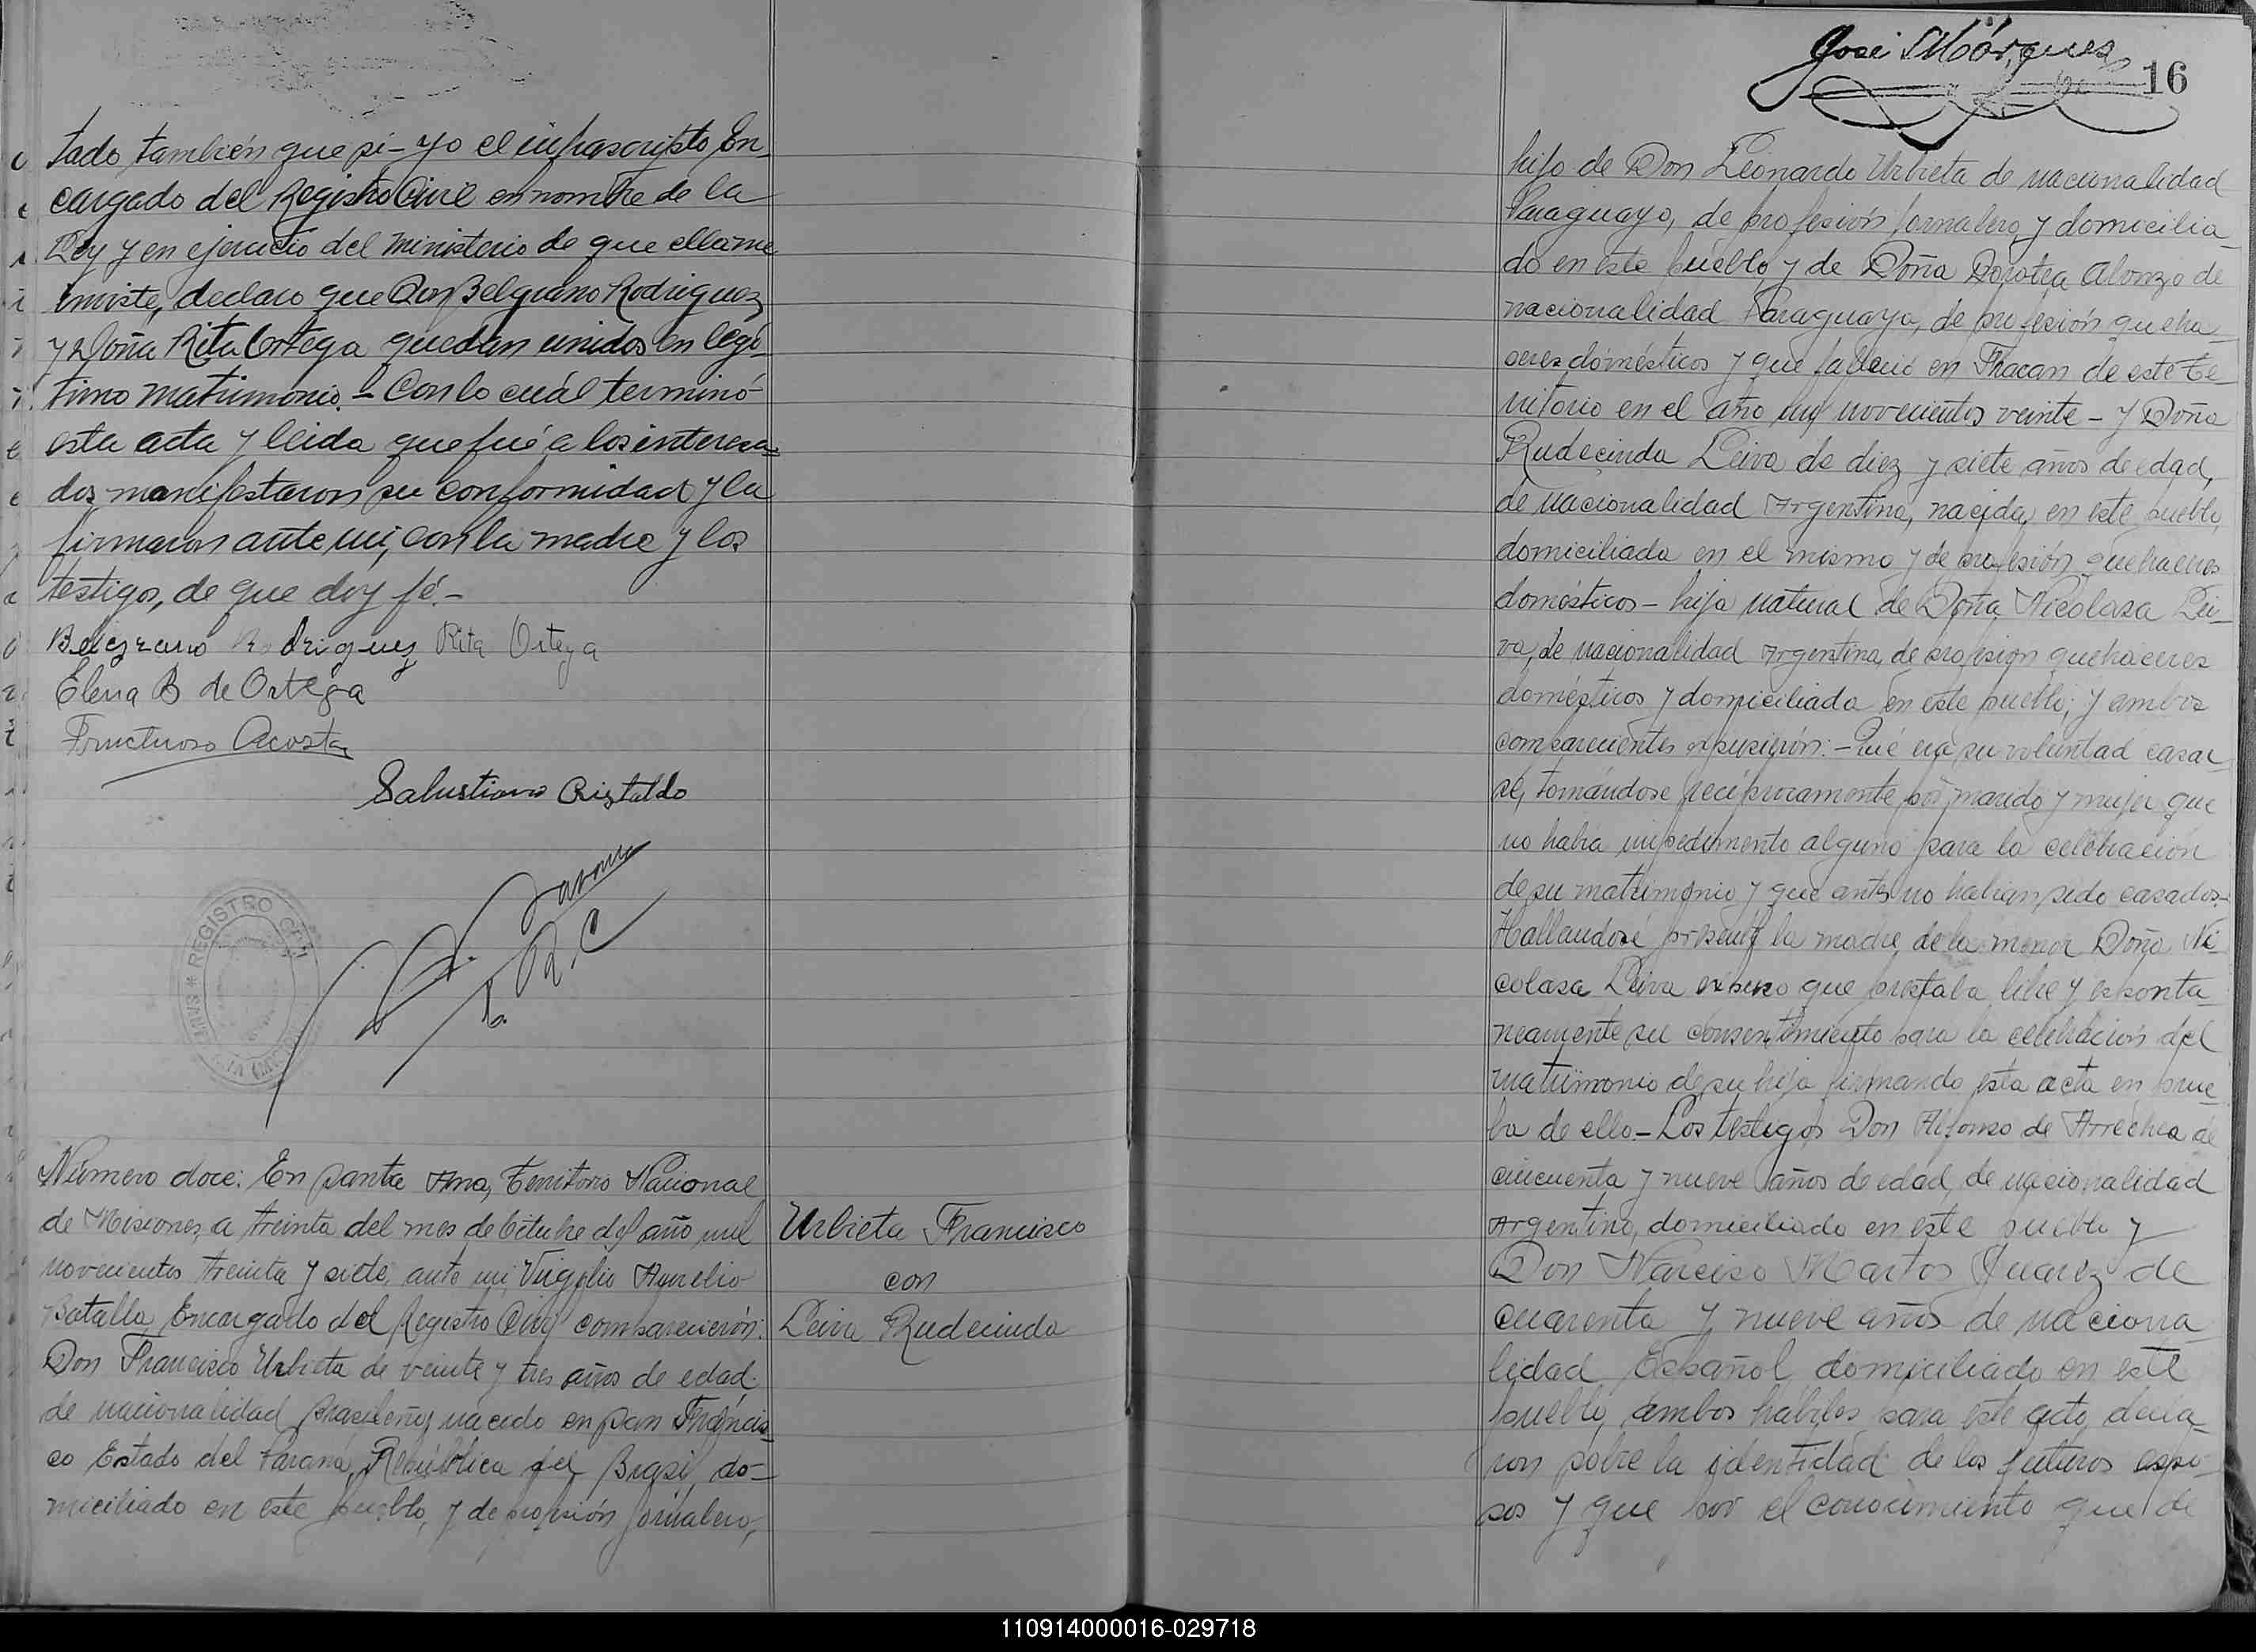 tado también que si - yo el infrascripto En-
cargado del Registro Civil en nombre de la
Ley y en ejercicio del ministerio de que ella me
inviste, declaro que Don Belgrano Rodriguez
y Doña Rita Ortega quedan unidos en legí-
timo matrimonio. - Con lo cuál terminó
esta acta y leida que fué a los interesa-
dos manifestaron su conformidad y la
firmaron ante mi, con la madre y los
testigos, de que doy fé. -
Belgrano Rodriguez Rita Ortega
Elena B de Ortega
Fructuoso Acosta
Salustiano Cristaldo
E. R. C
REGISTRO CIVIL
Número doce: En Santa Ana, Territorio Nacional
de Misiones, a treinta del mes de Octubre del año mil
novecientos treinta y siete, ante mi, Virgilio Aurelio
Batalla, Encargado del Registro Civil comparecieron:
Don Francisco Urbieta de veinte y tres años de edad,
de nacionalidad Brasileño, nacido en San Francis-
co Estado del Paraná, República del Brasil, do-
miciliado en este pueblo, y de profesión jornalero,
Urbieta Francisco
con
Leiva Rudecinda
José Márques
16
hijo de Don Leonardo Urbieta de nacionalidad
Paraguayo, de profesión jornalero, y domicilia-
do en este pueblo y de Doña Dorotea Alonzo de
nacionalidad Paraguaya, de profesión queha-
ceres domésticos y que falleció en de este te-
rritorio en el año mil novecientos veinte - y Doña
Rudecinda Leiva de diez y siete años de edad,
de nacionalidad Argentina, nacida en este pueblo,
domiciliada en el mismo y de profesión quehaceres
domésticos - hija natural de Doña Nicolasa Lei-
va, de nacionalidad Argentina, de profesión quehaceres
domésticos y domiciliada en este pueblo; y ambos
comparecientes expusieron: - Qué era su voluntad casar-
se, tomándose recíprocamente por marido y mujer que
no había impedimento alguno para la celebración
de su matrimonio y que antes no habian sido casados.-
Hallandose presente la madre de la menor Doña Ni-
colasa Leiva expuso que prestaba libre y esponta-
neamente su consentimiento para la celebración del
matrimonio de su hija firmando esta acta en prue-
ba de ello - Los testigos Don Alfonso de Arrechea de
cincuenta y nueve años de edad, de nacionalidad
Argentino, domiciliado en este pueblo y
Don Narciso Martos Juarez de
cuarenta y nueve años de naciona-
lidad Español domiciliado en este
pueblo, ambos hábiles para este acto, decla-
ron sobre la identidad de los futuros espo-
sos y que por el conocimiento que de
110914000016-029718